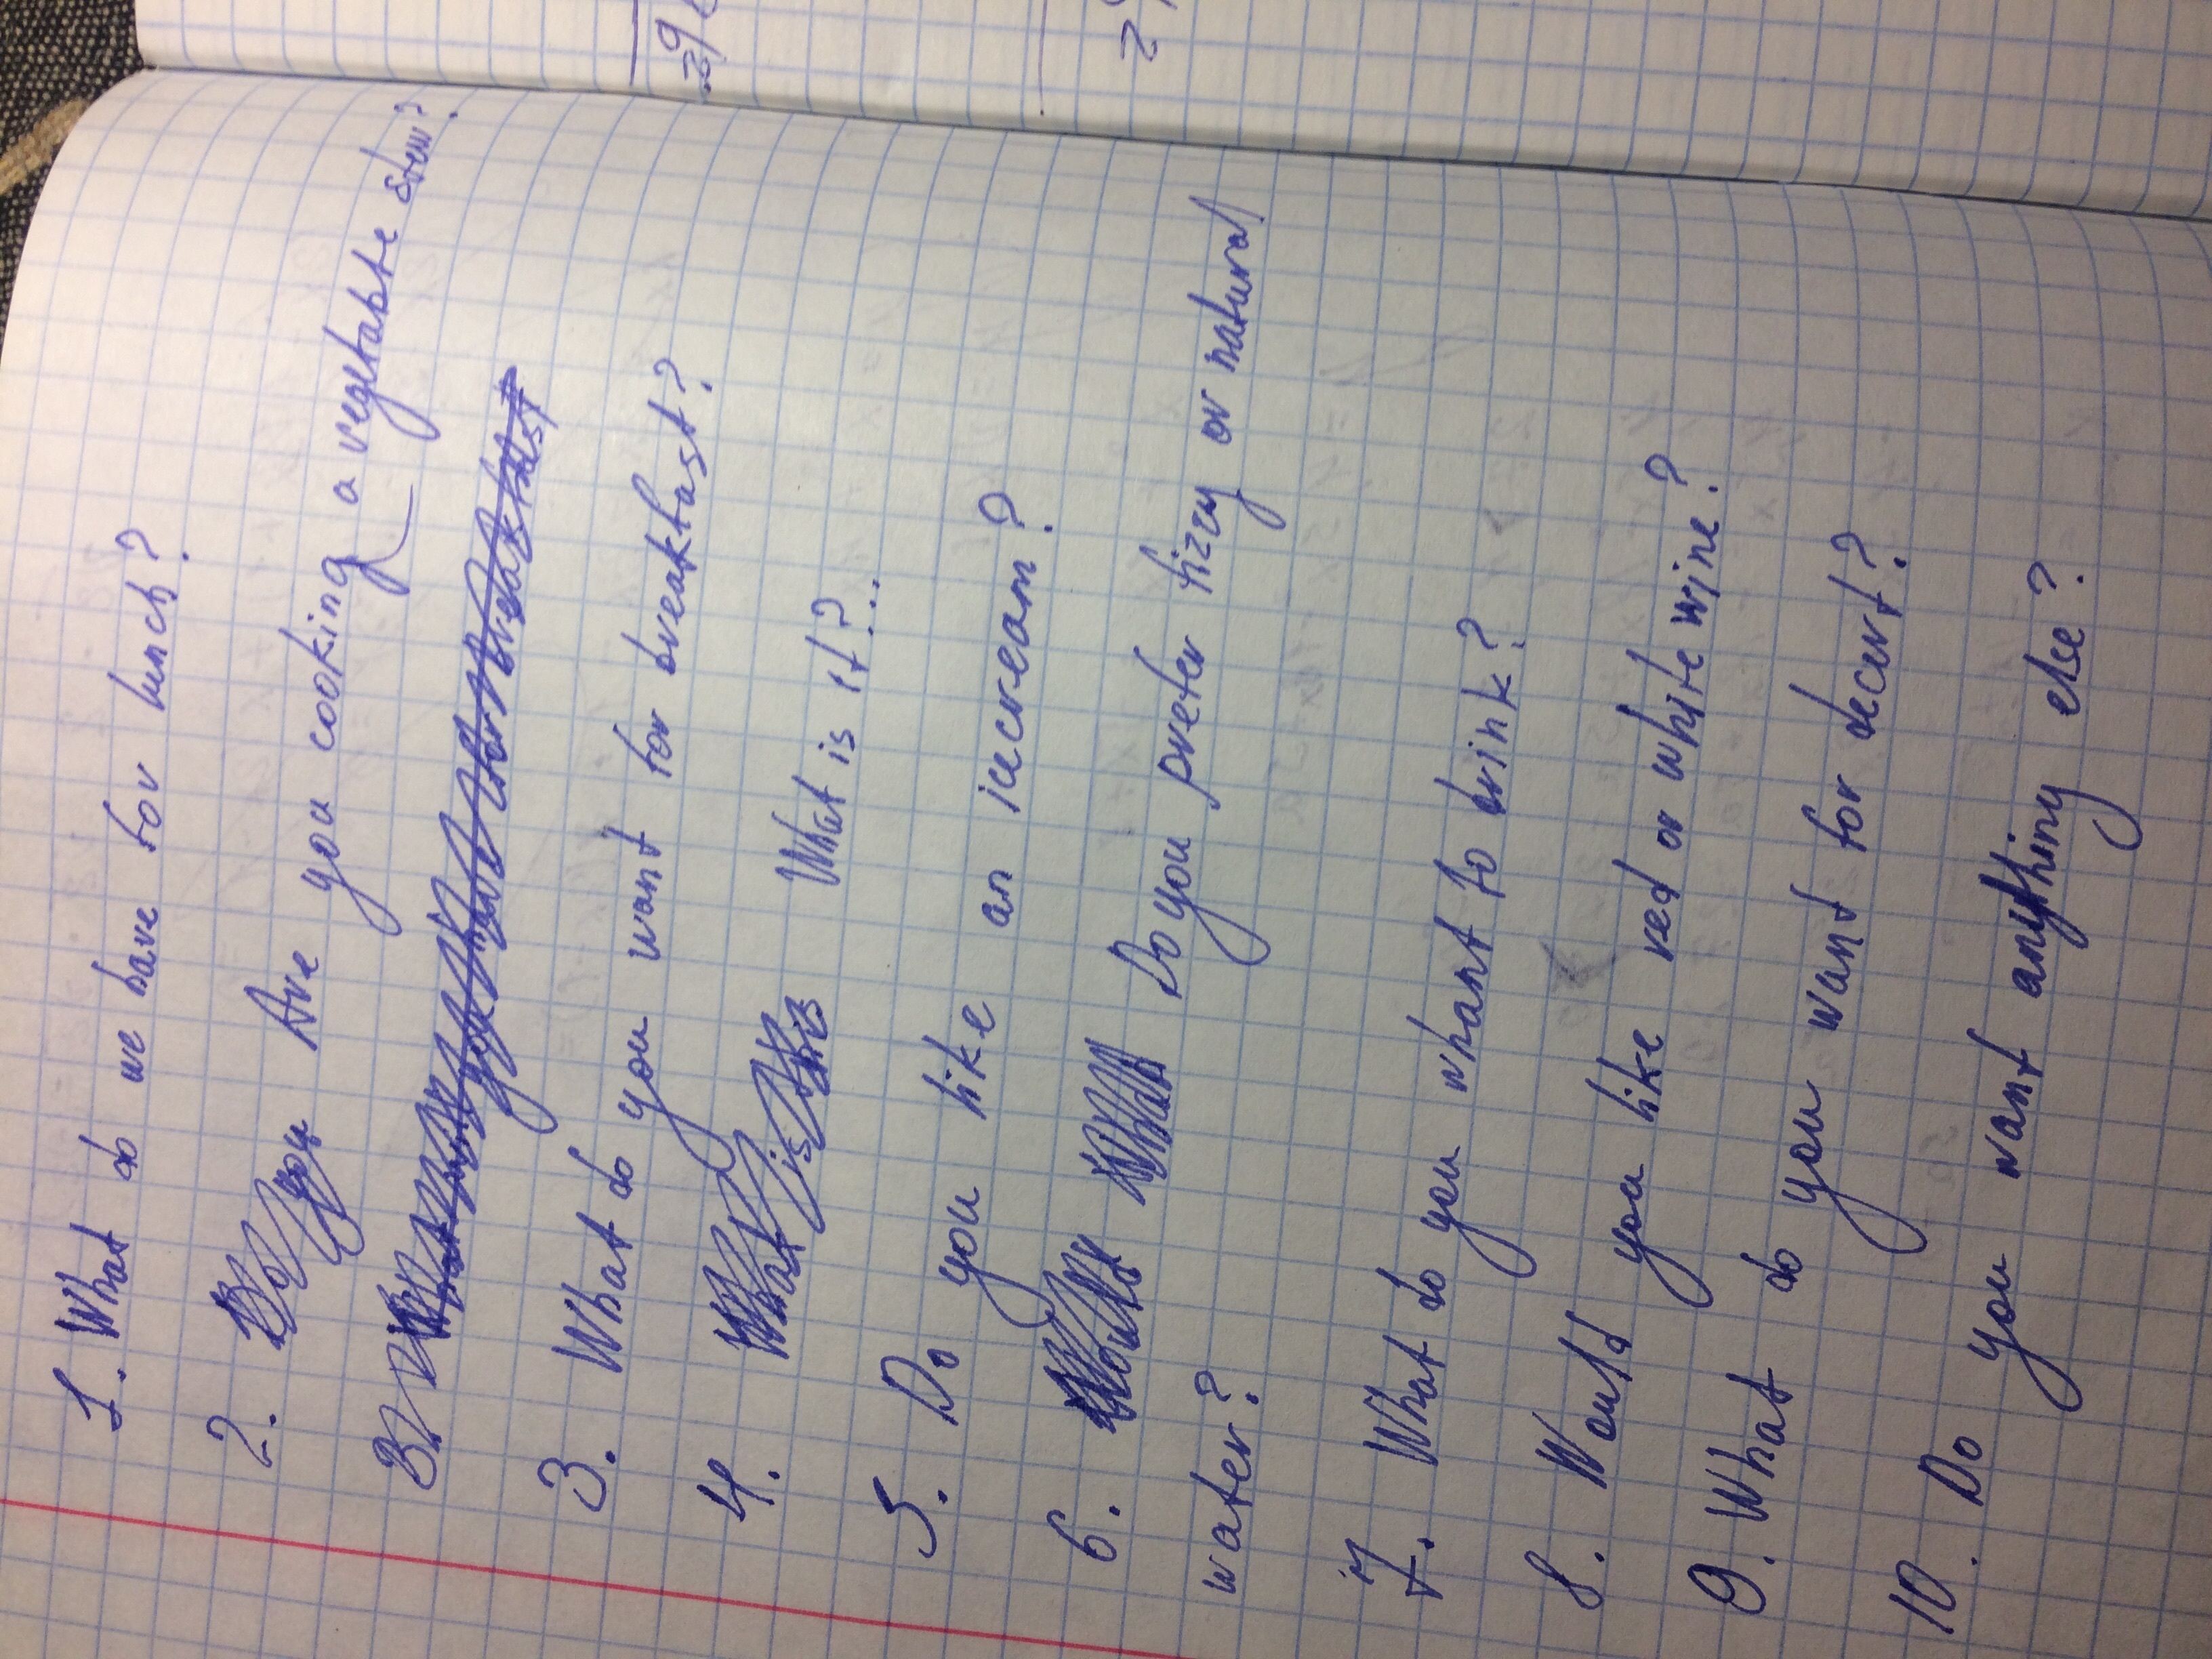 1. What do we have for lunch?
2. Are you cooking a vegetable stew?
3. What do you want for breakfast?
4. What is it?..
5. Do you like an icecream?
6. Do you prefer fizzy or natural
water?
7. What do you whant to drink?
8. Would you like red or white wine?
9. What do you want for decert?
10. Do you want anything else?